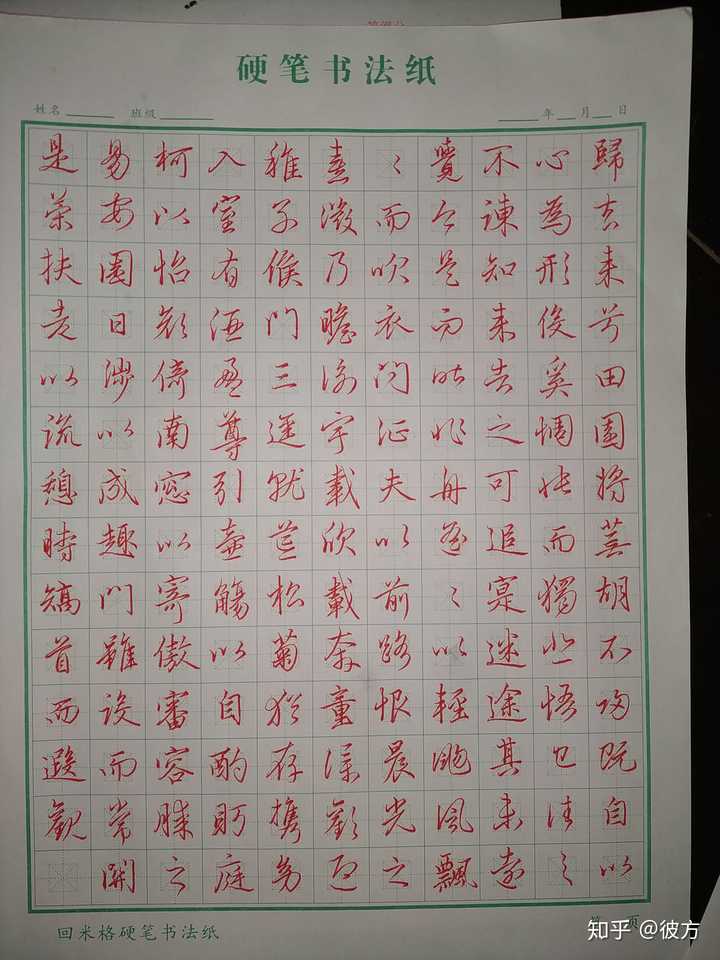 硬笔书法纸
姓名 班级 年 月 日
歸去來兮田園將蕪胡不歸既自以
心為形役奚惆悵而獨悲悟已往之
不諫知來者之可追寔迷途其未遠
覺今是而昨非舟遙々以輕颺風飄
々而吹衣問征夫以前路恨晨光之
熹微乃瞻衡宇載欣載奔童僕歡迎
稚子候門三逕就荒松菊猶存携幼
入室有酒盈尊引壺觴以自酌眄庭
柯以怡顏倚南窓以寄傲審容膝之
易安園日涉以成趣門雖設而常關
是策扶老以流憩時矯首而遐觀
回米格硬笔书法纸
第 页
知乎 @彼方